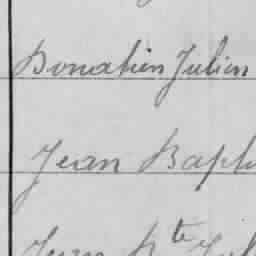 Donatien Julien
Jean Bapti
Jean Bte Jul